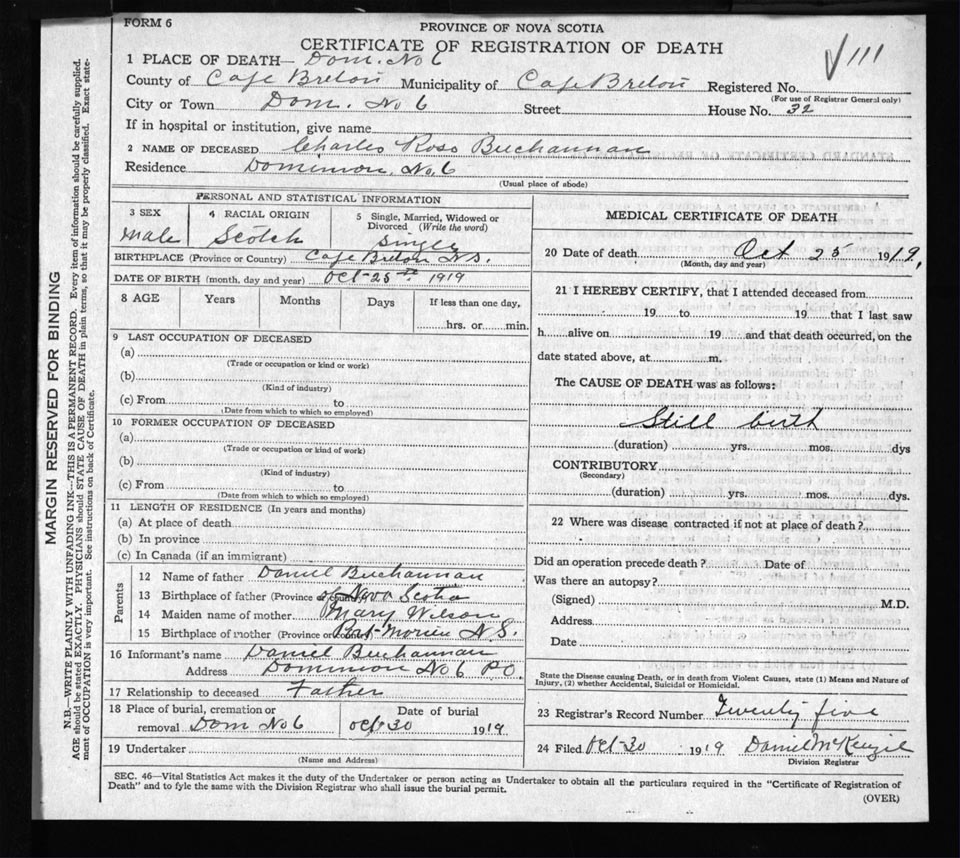 FORM 6
PROVINCE OF NOVA SCOTIA
CERTIFICATE OF REGISTRATION OF DEATH
1 PLACE OF DEATH— Dom. No 6
County of Cape Breton Municipality of Cape Breton Registered No.
(For use of Registrar General only)
City or Town Dom. No 6 Street House No. 32
If in hospital or institution, give name
2 NAME OF DECEASED Charles Ross Buchannan
Residence Dominion. No. 6
(Usual place of abode)
PERSONAL AND STATISTICAL INFORMATION
3 SEX 4 RACIAL ORIGIN 5 Single, Married, Widowed or Divorced (Write the word)
Male Scotch Single
BIRTHPLACE (Province or Country) Cape Breton N.S.
DATE OF BIRTH (month, day and year) Oct-25th 1919
8 AGE Years Months Days If less than one day,
hrs. or min.
9 LAST OCCUPATION OF DECEASED
(a)
(Trade or occupation or kind or work)
(b)
(Kind of industry)
(c) From to
(Date from which to which so employed)
10 FORMER OCCUPATION OF DECEASED
(a)
(Trade or occupation or kind of work)
(b)
(Kind of industry)
(c) From to
(Date from which to which so employed)
11 LENGTH OF RESIDENCE (In years and months)
(a) At place of death
(b) In province
(c) In Canada (if an immigrant)
Parents
12 Name of father Daniel Buchannan
13 Birthplace of father (Province or Country) Nova Scotia
14 Maiden name of mother Mary Wilson
15 Birthplace of mother (Province or Country) Port-Morien N.S.
16 Informant's name Daniel Buchannan
Address Dominion No 6 P.O.
17 Relationship to deceased Father
18 Place of burial, cremation or Date of burial
removal Dom No 6 Oct-30 1919
19 Undertaker
(Name and Address)
MEDICAL CERTIFICATE OF DEATH
20 Date of death Oct 25 1919.
(Month, day and year)
21 I HEREBY CERTIFY, that I attended deceased from
19 to 19 that I last saw
h alive on 19 and that death occurred, on the
date stated above, at m.
The CAUSE OF DEATH was as follows:
Still birth
(duration) yrs. mos. dys
CONTRIBUTORY
(Secondary)
(duration) yrs. mos. dys.
22 Where was disease contracted if not at place of death?
Did an operation precede death? Date of
Was there an autopsy?
(Signed) M.D.
Address
Date
State the Disease causing Death, or in death from Violent Causes, state (1) Means and Nature of
Injury, (2) whether Accidental, Suicidal or Homicidal.
23 Registrar's Record Number Twenty five
24 Filed Oct-30 1919 Daniel McKenzie
Division Registrar
SEC. 46—Vital Statistics Act makes it the duty of the Undertaker or person acting as Undertaker to obtain all the particulars required in the "Certificate of Registration of
Death" and to fyle the same with the Division Registrar who shall issue the burial permit.
(OVER)
MARGIN RESERVED FOR BINDING
N.B.—WRITE PLAINLY WITH UNFADING INK—THIS IS A PERMANENT RECORD. Every item of information should be carefully supplied.
AGE should be stated EXACTLY. PHYSICIANS should STATE CAUSE OF DEATH in plain terms, so that it may be properly classified. Exact state-
ment of OCCUPATION is very important. See instructions on back of Certificate.